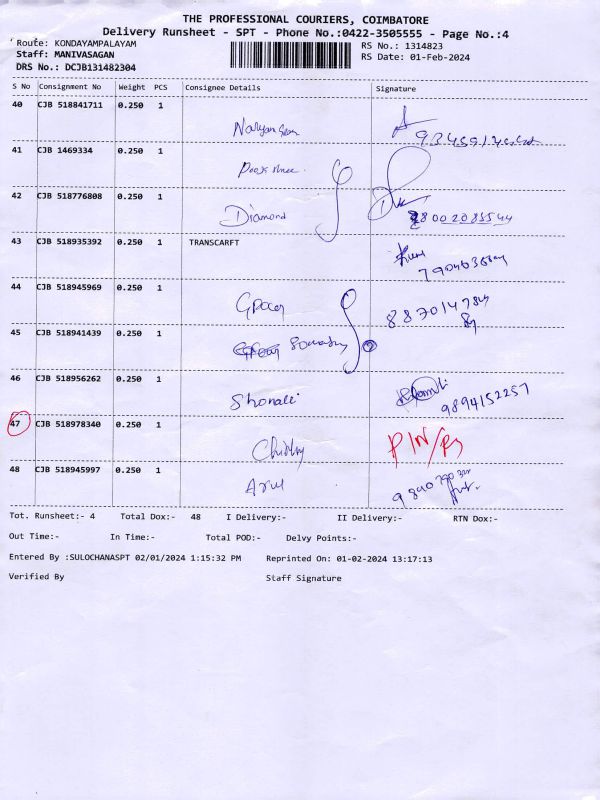 THE PROFESSIONAL COURIERS, COIMBATORE
Delivery Runsheet - SPT - Phone No.:0422-3505555 - Page No.:4
Route: KONDAYAMPALAYAM
RS No.: 1314823
Staff: MANIVASAGAN
RS Date: 01-Feb-2024
DRS No.: DCJB131482304
S No Consignment No Weight PCS Consignee Details Signature
40 CJB 518841711 0.250 1
41 CJB 1469334 0.250 1
42 CJB 518776808 0.250 1
Diamond
43 CJB 518935392 0.250 1 TRANSCARFT
44 CJB 518945969 0.250 1
45 CJB 518941439 0.250 1
46 CJB 518956262 0.250 1
Shonali 9894152257
47 CJB 518978340 0.250 1
48 CJB 518945997 0.250 1
Arul
Tot. Runsheet:- 4 Total Dox:- 48 I Delivery:- II Delivery:- RTN Dox:-
Out Time:- In Time:- Total POD:- Delvy Points:-
Entered By :SULOCHANASPT 02/01/2024 1:15:32 PM Reprinted On: 01-02-2024 13:17:13
Verified By Staff Signature